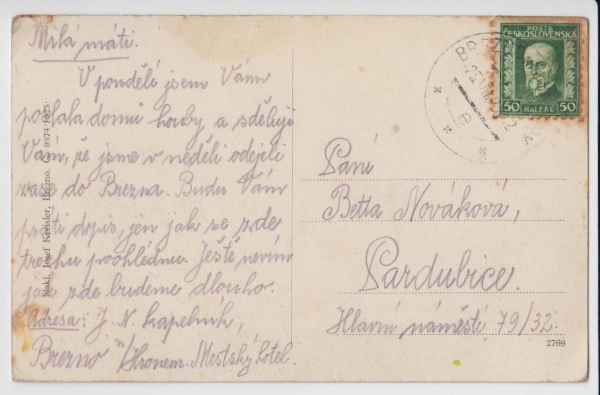 Milá máti.
V pondělí jsem Vám
poslala domů houby a sděluji
Vám, že jsme v neděli odejeli
zase do Brezna. Budu Vám
psáti dopis, jen jak se zde
trochu poohlédnu. Ještě nevím
jak zde budeme dlouho.
Adresa: J. N. kapelník,
Brezno n/Hronem. Mestský hotel.
Nákl. Josef Kreisler, Brezno. 9874 1925
POŠTA
ČESKOSLOVENSKÁ
50 HALÉŘŮ 50
BREZNO
Paní
Betta Nováková,
Pardubice.
Hlavní náměstí 79/32.
2769